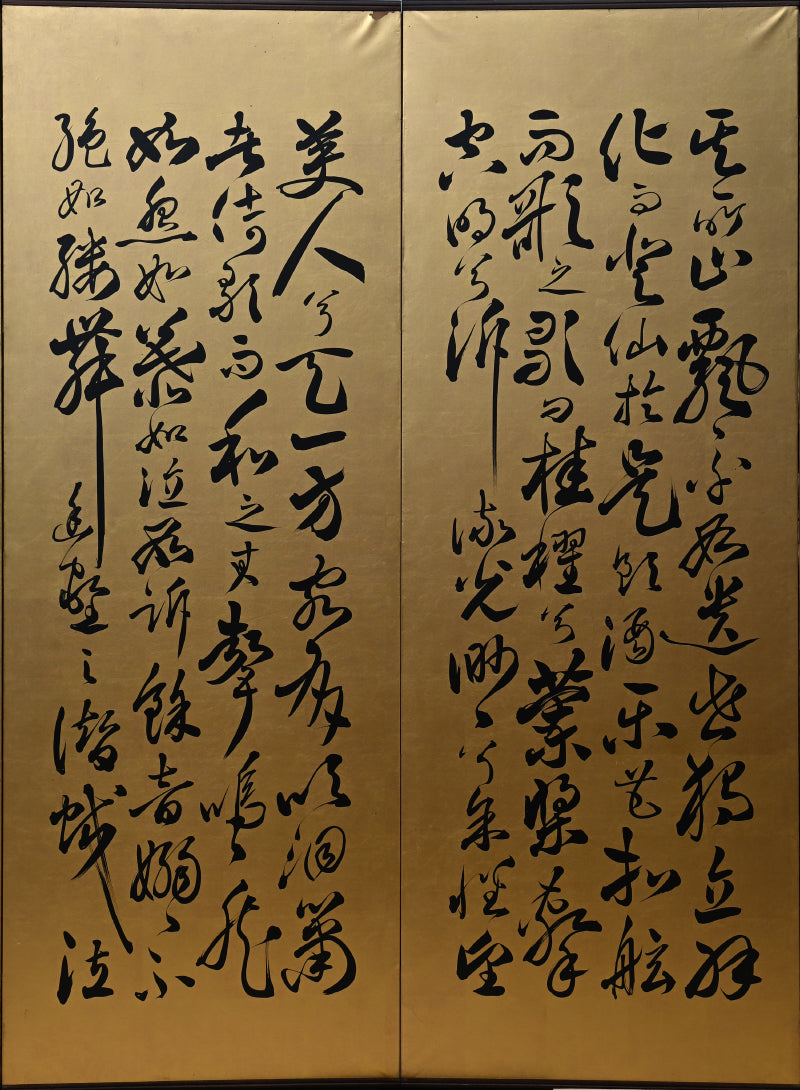 其所止飄〻乎如遺世獨立羽
化而登仙於是飲酒樂甚扣舷
而歌之歌曰桂櫂兮蘭槳擊
空明兮泝流光渺〻兮余懷望
美人兮天一方客有吹洞簫
者倚歌而和之其聲嗚〻然
如怨如慕如泣如訴餘音嫋〻不
絕如縷舞幽壑之潛蛟泣